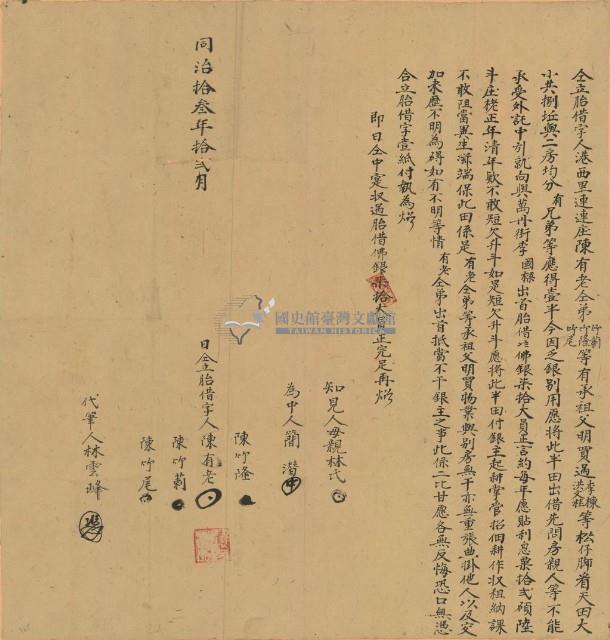 仝立胎借字人港西里連連庄陳有老仝弟竹葪竹隆竹尾等有承祖父明買過李棟洪文柱等松仔脚看天田大
小共捌坵與二房均分有兄弟等應得壹半今因乏銀別用應將此半田出借先問房親人等不能
承受外託中引就向與萬丹街李國樑出首胎借出佛銀柒拾大員正言約每年應貼利息粟拾弍碩陸
斗庄栳正年清年款不敢短欠升斗如是短欠升斗應將此半田付銀主起耕掌管招佃耕作收租納課
不敢阻當異生滋端保此田係是有老仝弟等承祖父明買物業與別房無干亦無重張典掛他人以及交
加來歷不明為碍如有不明等情有老仝弟出首抵當不干銀主之事此係二比甘愿各無反悔恐口無憑
合立胎借字壹紙付執為炤
即日仝中寔収過胎借佛銀柒拾大員正完足再炤
知見人母親林氏
為中人簡潛
陳竹隆
日仝立胎借字人陳有老
陳竹葪
陳竹尾
同治拾叁年拾弍月
代筆人林雲峰
國史館臺灣文獻館
TAIWAN HISTORICA